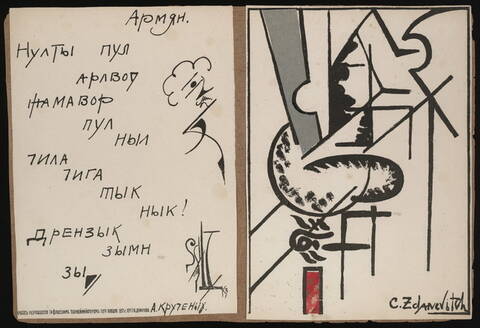 Армян.
Нулты пул
арлвот
жамавор
пул
ныи
тила
тига
тык
нык!
Дрензык
зымн
зы
А. Крученых.
C. Zdanevitch